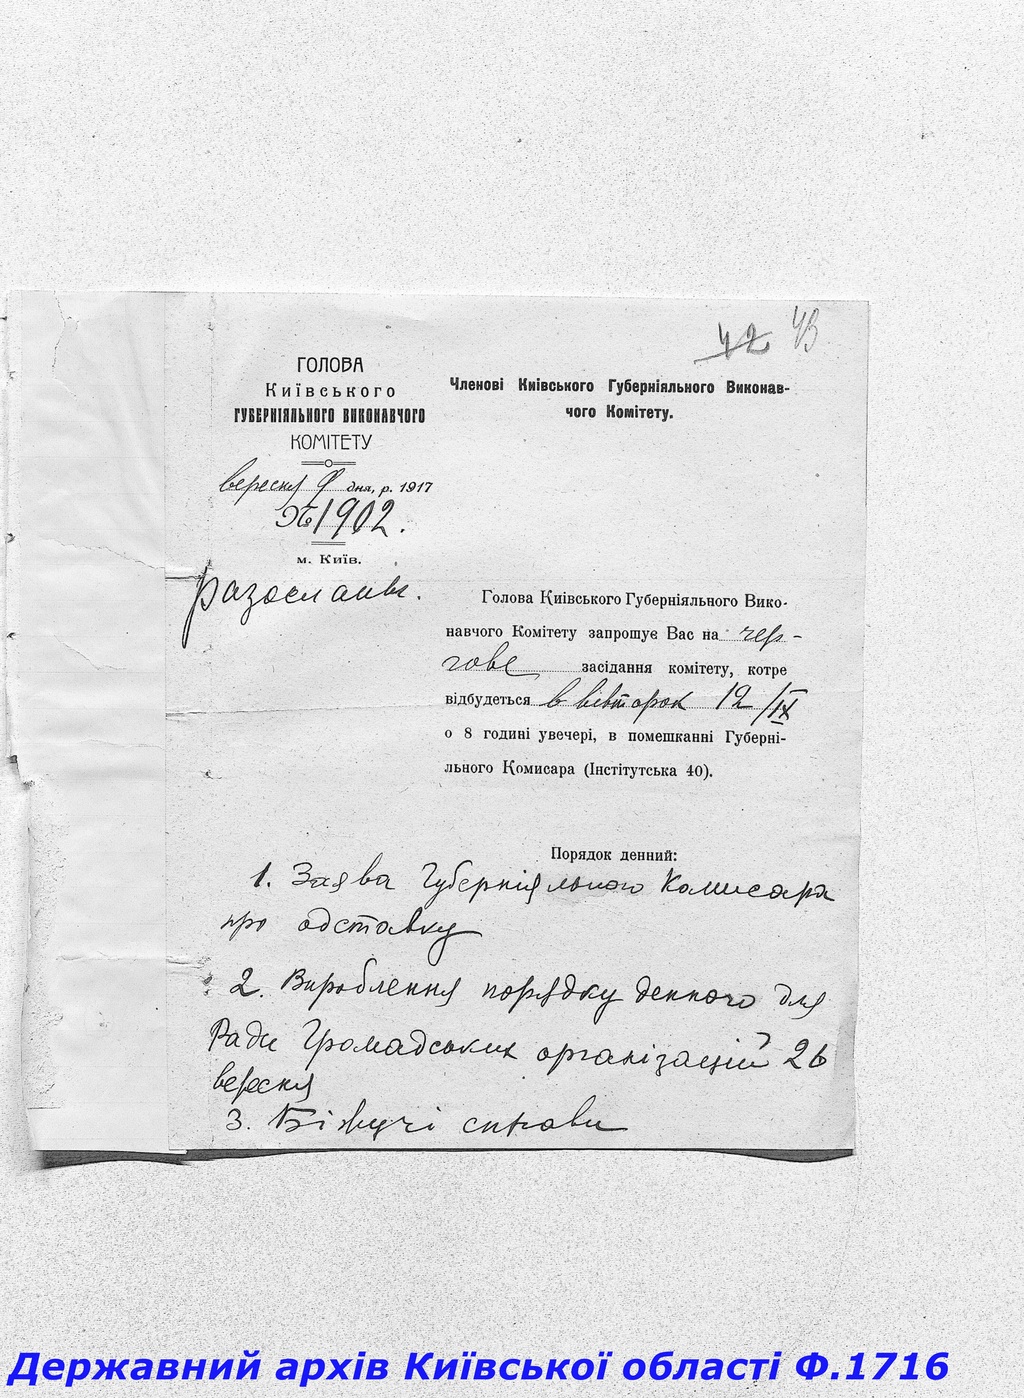 42 43
ГОЛОВА
Київського
ГУБЕРНІЯЛЬНОГО ВИКОНАВЧОГО
КОМІТЕТУ
вересня 9 дня, р. 1917
№ 1902.
м. Київ.
разослань.
Членові Київського Губерніяльного Виконав-
чого Комітету.
Голова Київського Губерніяльного Вико-
навчого Комітету запрошує Вас на чер-
гове засідання комітету, котре
відбудеться в вівторок 12/IX
о 8 годині увечері, в помешканні Губерні-
льного Комисара (Інстітутська 40).
Порядок денний:
1. Заява Губерніяльного Комисара
про одставку
2. Вироблення порядку денного для
Ради Громадських організацій 26
вересня
3. Біжучі справи
Державний архів Київської області Ф.1716